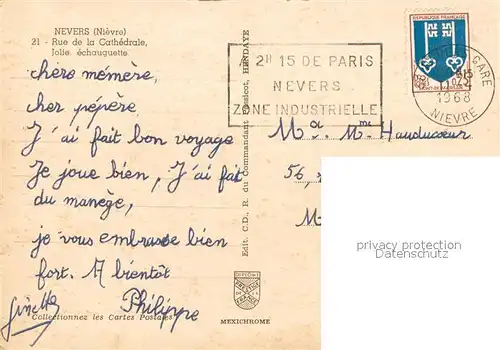 NEVERS (Nièvre)
21 - Rue de la Cathédrale,
Jolie échauguette.
chère mémère,
cher pépère,
J'ai fait bon voyage
Je joue bien, J'ai fait
du manège,
je vous embrasse bien
fort. A bientôt
Philippe
Collectionnez les Cartes Postales
Edit. C.D., R. du Commandant Passicot, HENDAYE
MEXICHROME
A 2H 15 DE PARIS
NEVERS
ZONE INDUSTRIELLE
REPUBLIQUE FRANÇAISE
GARE
1968
NIEVRE
Me Mme Hauducoeur
56,
M
privacy protection
Datenschutz